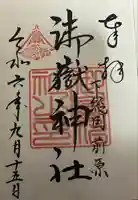 奉拝
下総国前原
御嶽神社
令和六年九月十五日